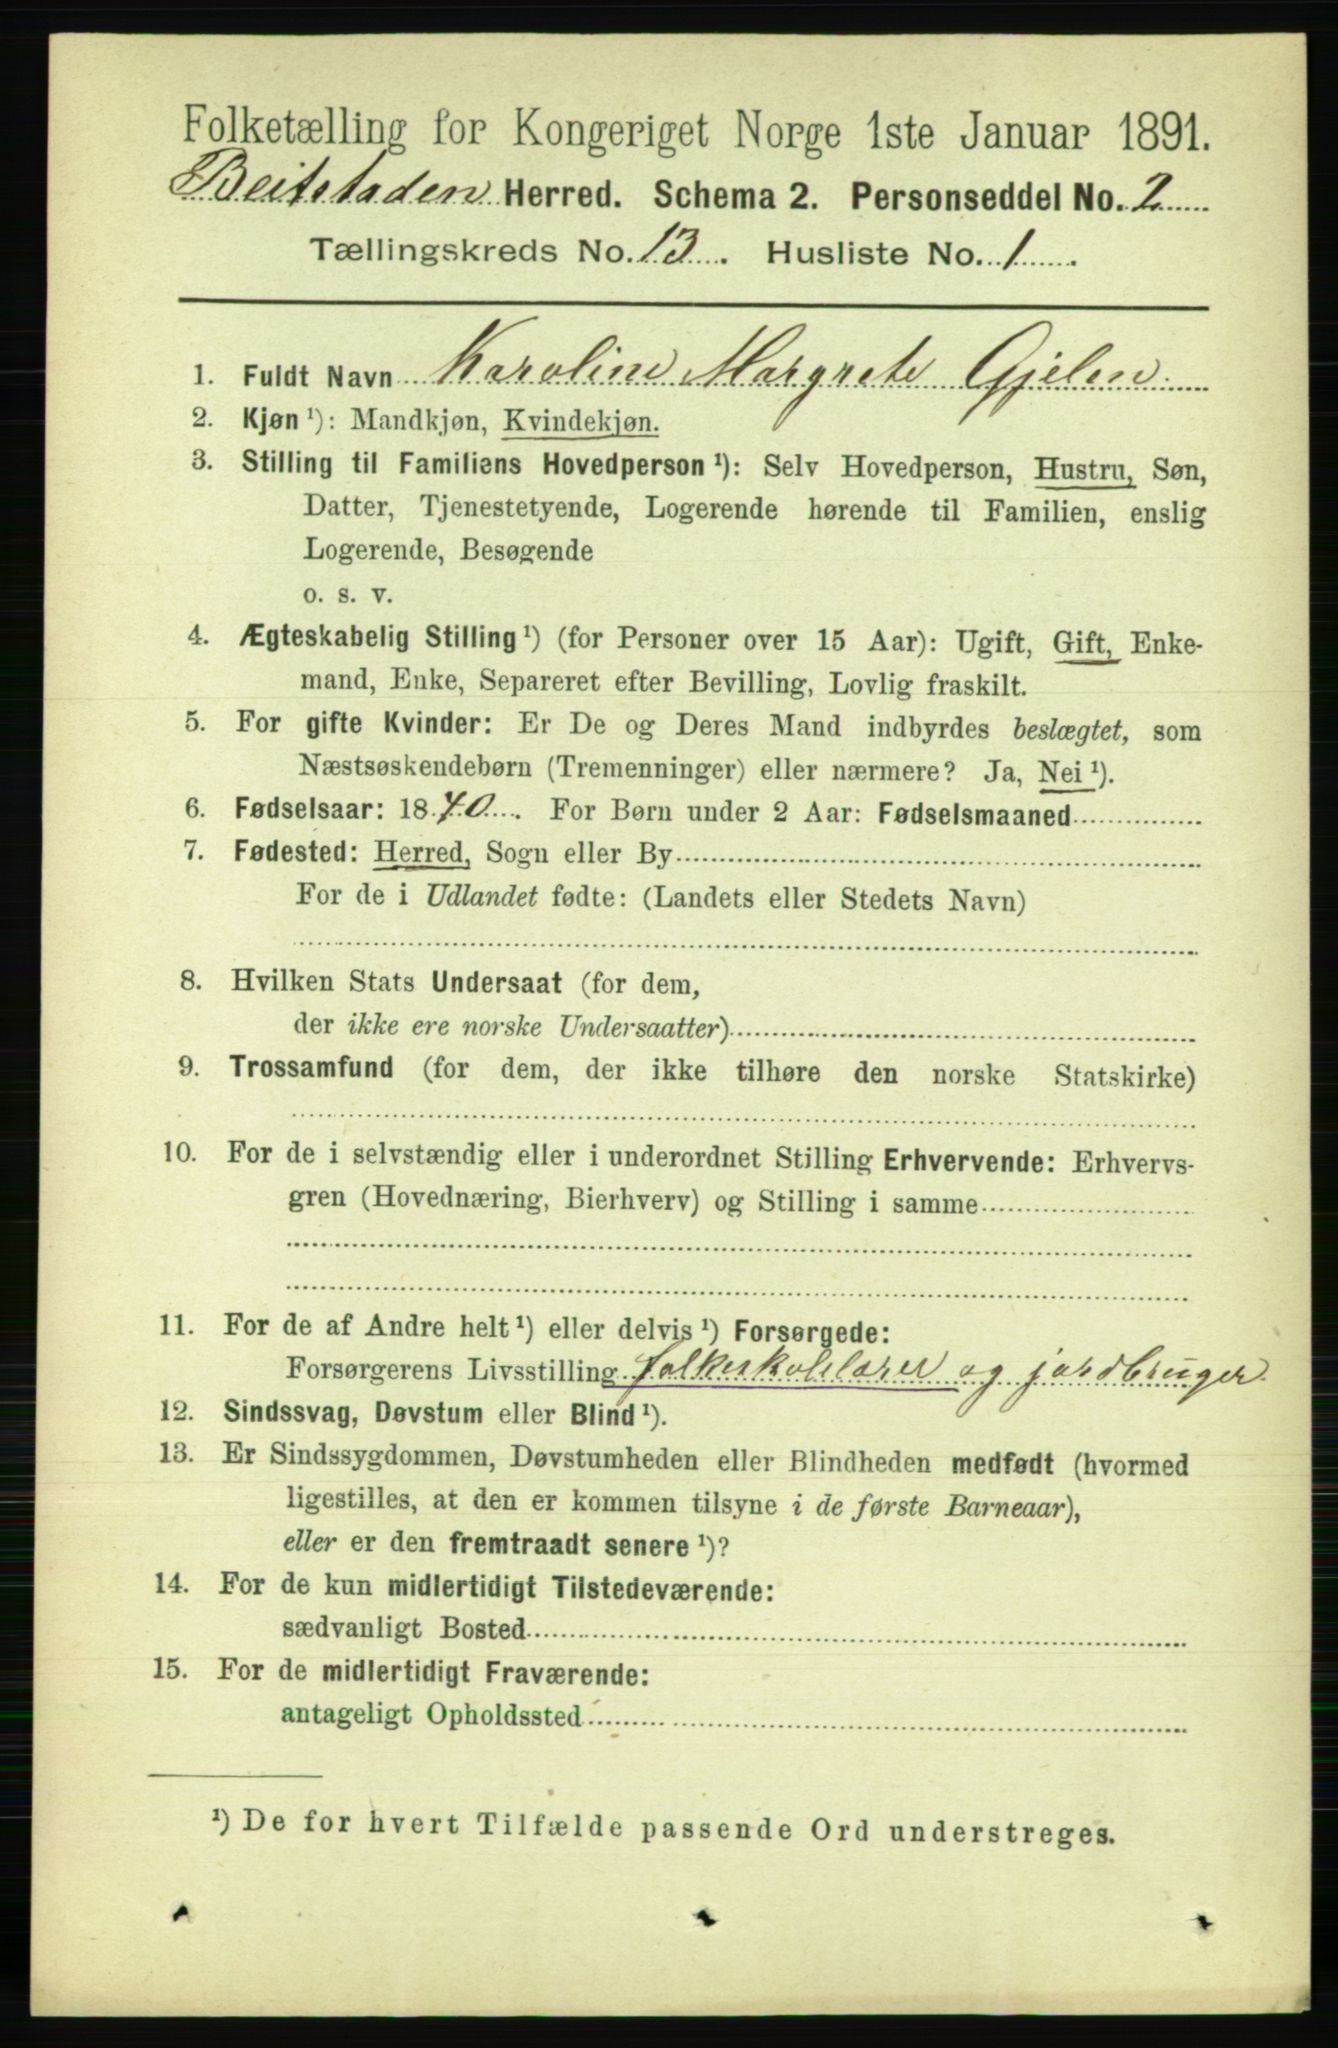 Folketælling for Kongeriget Norge 1ste Januar 1891.
Beitstaden Herred. Schema 2. Personseddel No. 2
Tællingskreds No. 13. Husliste No. 1.
1. Fuldt Navn Karoline Margrete Gjelen
2. Kjøn ¹): Mandkjøn, Kvindekjøn.
3. Stilling til Familiens Hovedperson ¹): Selv Hovedperson, Hustru, Søn,
Datter, Tjenestetyende, Logerende hørende til Familien, enslig
Logerende, Besøgende
o. s. v.
4. Ægteskabelig Stilling ¹) (for Personer over 15 Aar): Ugift, Gift, Enke-
mand, Enke, Separeret efter Bevilling, Lovlig fraskilt.
5. For gifte Kvinder: Er De og Deres Mand indbyrdes beslægtet, som
Næstsøskendebørn (Tremenninger) eller nærmere? Ja, Nei ¹).
6. Fødselsaar: 1870. For Børn under 2 Aar: Fødselsmaaned
7. Fødested: Herred, Sogn eller By
For de i Udlandet fødte: (Landets eller Stedets Navn)
8. Hvilken Stats Undersaat (for dem,
der ikke ere norske Undersaatter)
9. Trossamfund (for dem, der ikke tilhøre den norske Statskirke)
10. For de i selvstændig eller i underordnet Stilling Erhvervende: Erhvervs-
gren (Hovednæring, Bierhverv) og Stilling i samme
11. For de af Andre helt ¹) eller delvis ¹) Forsørgede:
Forsørgerens Livsstilling folkeskolelærer og jordbruger
12. Sindssvag, Døvstum eller Blind ¹).
13. Er Sindssygdommen, Døvstumheden eller Blindheden medfødt (hvormed
ligestilles, at den er kommen tilsyne i de første Barneaar),
eller er den fremtraadt senere ¹)?
14. For de kun midlertidigt Tilstedeværende:
sædvanligt Bosted
15. For de midlertidigt Fraværende:
antageligt Opholdssted
¹) De for hvert Tilfælde passende Ord understreges.